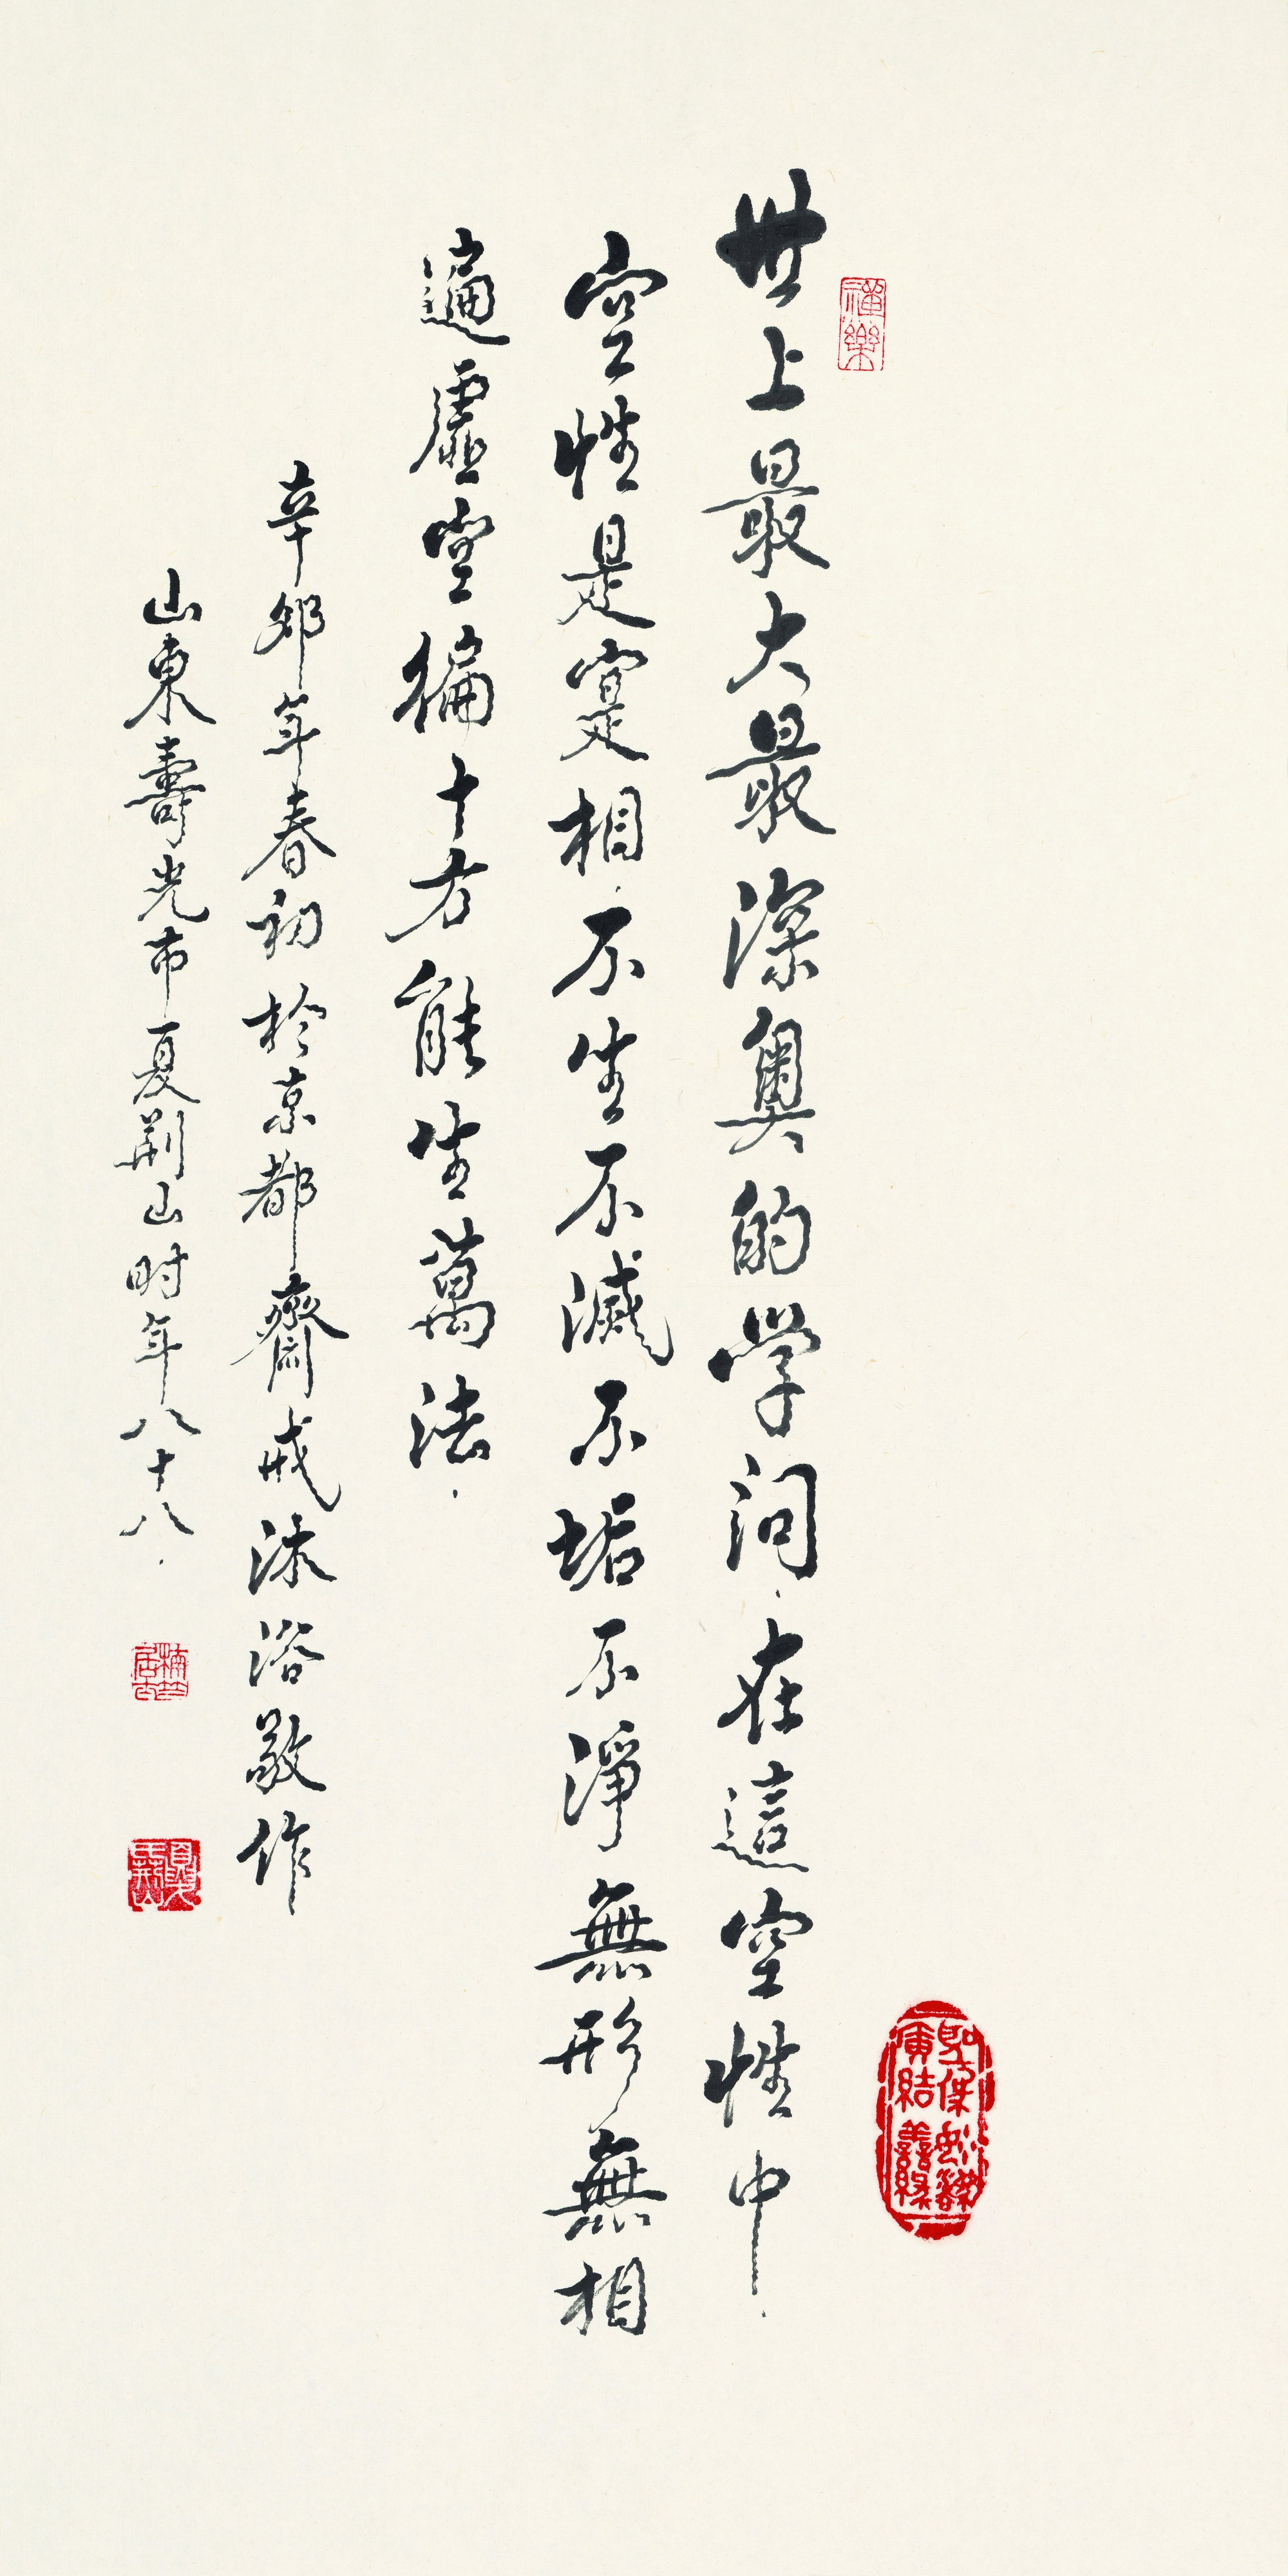 禪樂
世上最大最深奥的学问.在這空性中.
空性是寔相.不生不滅不垢不淨無形無相
遍虛空徧十方能生萬法.
辛卯年春初於京都齋戒沐浴敬作
山東壽光市夏荆山时年八十八.
廣結善緣